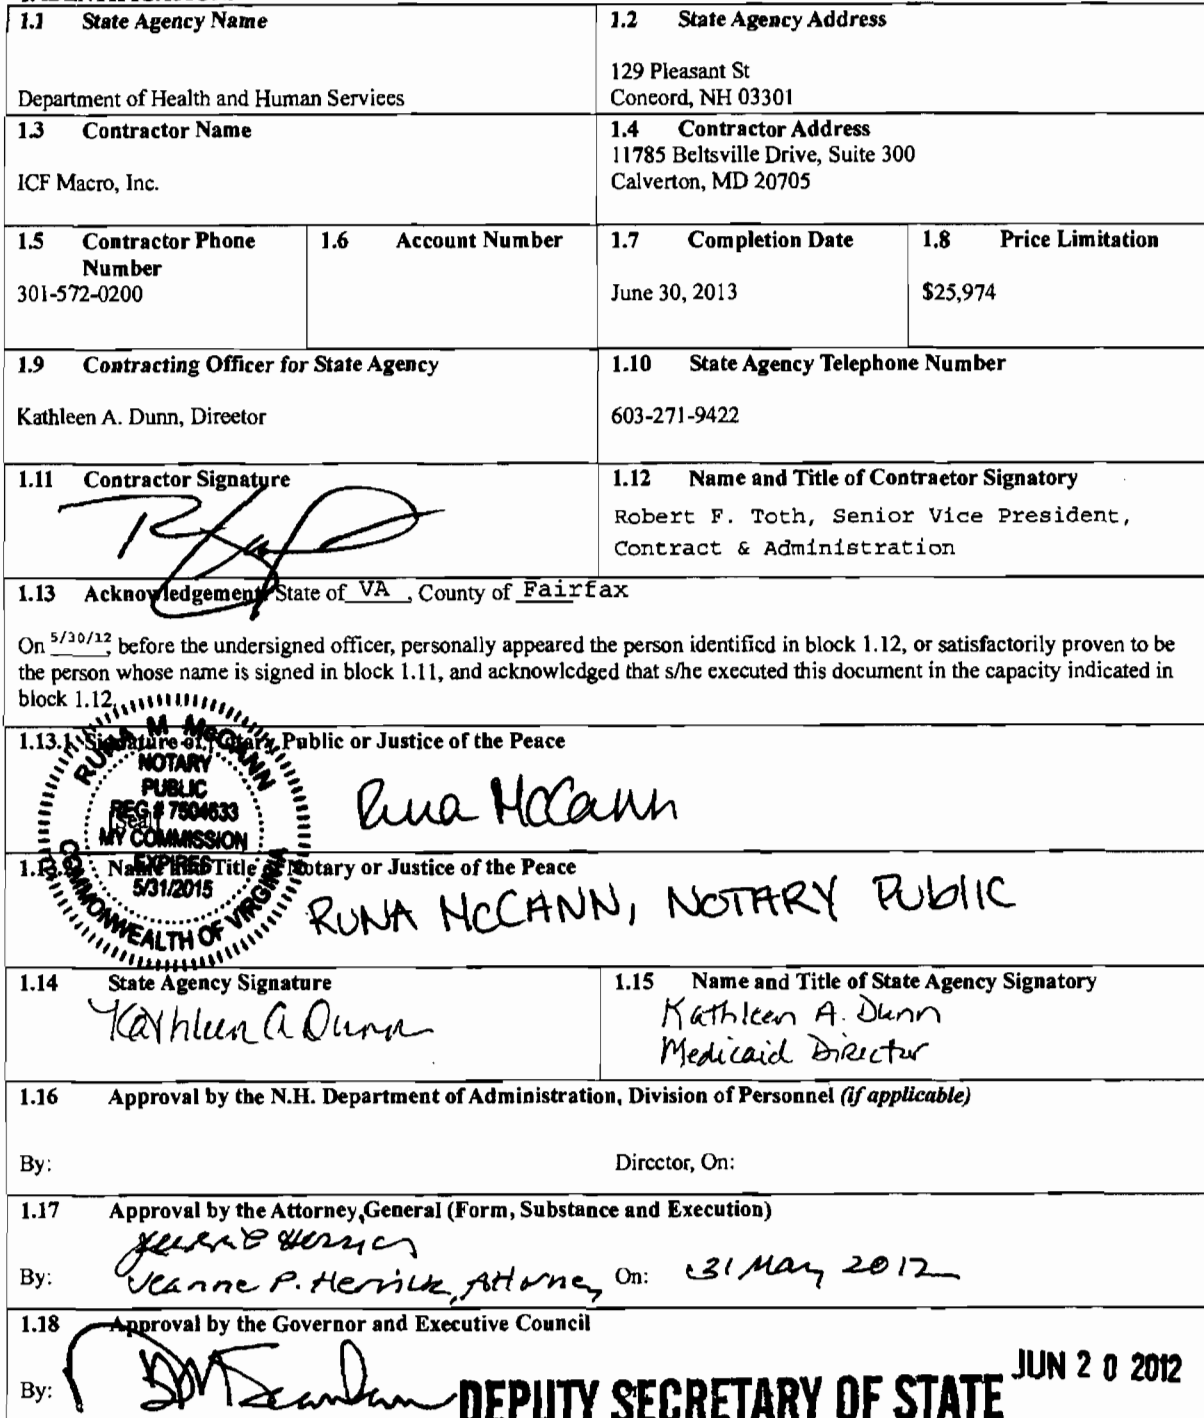 1.1 State Agency Name
Department of Health and Human Services
1.2 State Agency Address
129 Pleasant St
Concord, NH 03301
1.3 Contractor Name
ICF Macro, Inc.
1.4 Contractor Address
11785 Beltsville Drive, Suite 300
Calverton, MD 20705
1.5 Contractor Phone
Number
301-572-0200
1.6 Account Number
1.7 Completion Date
June 30, 2013
1.8 Price Limitation
$25,974
1.9 Contracting Officer for State Agency
Kathleen A. Dunn, Director
1.10 State Agency Telephone Number
603-271-9422
1.11 Contractor Signature
1.12 Name and Title of Contractor Signatory
Robert F. Toth, Senior Vice President,
Contract & Administration
1.13 Acknowledgement: State of VA , County of Fairfax
On 5/30/12, before the undersigned officer, personally appeared the person identified in block 1.12, or satisfactorily proven to be
the person whose name is signed in block 1.11, and acknowledged that s/he executed this document in the capacity indicated in
block 1.12.
1.13.1 Signature of Notary Public or Justice of the Peace
Runa McCann
RUNA M McCANN
NOTARY
PUBLIC
REG # 7504633
[Seal]
MY COMMISSION
EXPIRES
5/31/2015
COMMONWEALTH OF VIRGINIA
Name and Title Notary or Justice of the Peace
RUNA McCANN, NOTARY PUBLIC
1.14 State Agency Signature
Kathleen A Dunn
1.15 Name and Title of State Agency Signatory
Kathleen A. Dunn
Medicaid Director
1.16 Approval by the N.H. Department of Administration, Division of Personnel (if applicable)
By:
Director, On:
1.17 Approval by the Attorney General (Form, Substance and Execution)
By: Jeanne P. Herrick, Attorney On: 31 May 2012
1.18 Approval by the Governor and Executive Council
By:
DEPUTY SECRETARY OF STATE JUN 20 2012